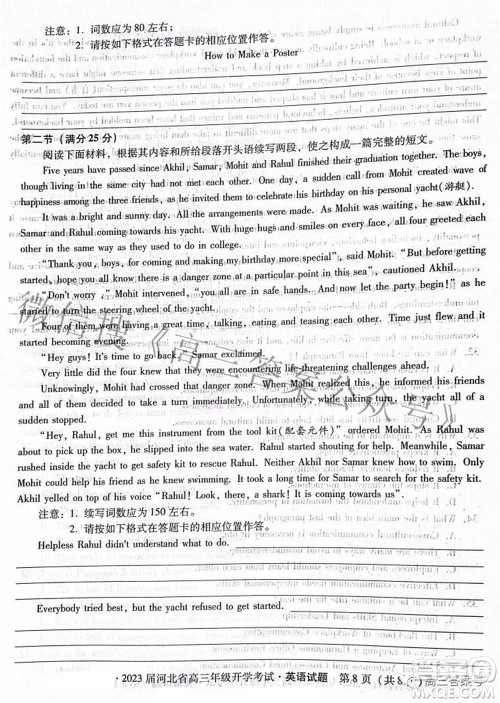 注意：1. 词数应为 80 左右；
2. 请按如下格式在答题卡的相应位置作答。
How to Make a Poster
第二节（满分 25 分）
阅读下面材料，根据其内容和所给段落开头语续写两段，使之构成一篇完整的短文。
Five years have passed since Akhil, Samar, Mohit and Rahul finished their graduation together. The boys,
though living in the same city had not met each other. One day, a sudden call from Mohit created wave of
happiness among the three friends, as he invited them to celebrate his birthday on his personal yacht(游艇).
It was a bright and sunny day. All the arrangements were made. As Mohit was waiting, he saw Akhil,
Samar and Rahul coming towards his yacht. With huge hugs and smiles on every face, all four greeted each
other in the same way as they used to do in college.
“Thank you, boys, for coming and making my birthday more special”, said Mohit. “But before getting
started, hope you all know about the danger zone at a particular point in this sea”, cautioned Akhil.
“Don't worry ,” Mohit intervened, “you all are in safe hands. And now let the party begin!” as he
started to turn the steering wheel of the yacht.
Four of them were enjoying, talking, eating and teasing each other. Time just flew and it
started becoming evening.
“Hey guys! It's time to go back”, Samar exclaimed.
Very little did the four knew that they were encountering life-threatening challenges ahead.
Unknowingly, Mohit had crossed that danger zone. When Mohit realized this, he informed his friends
and all started to panic. Unfortunately, while taking the turn, the yacht all of a
sudden stopped.
“Hey, Rahul, get me this instrument from the tool kit(配套元件)” ordered Mohit. As Rahul was
about to pick up the box, he slipped into the sea water. Rahul started shouting for help. Meanwhile, Samar
rushed inside the yacht to get safety kit to rescue Rahul. Neither Akhil nor Samar knew how to swim. Only
Mohit could help his friend as he knew swimming. It took a long time for Samar to search the safety kit.
Akhil yelled on top of his voice “Rahul! Look, there are a shark! It is coming towards us”.
注意：1. 续写词数应为 150 左右。
2. 请按如下格式在答题卡的相应位置作答。
Helpless Rahul didn't understand what to do.
Everybody tried best, but the yacht refused to get started.
2023 届河北省高三年级开学考试·英语试题 第 8 页（共 8
微信搜《高三答案公众号》
高三答案号